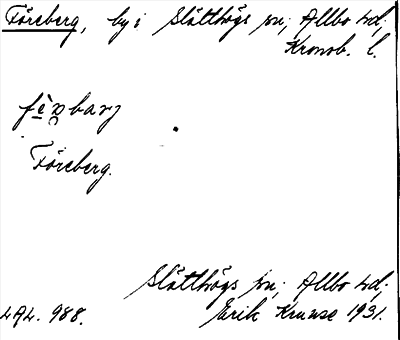 Föreberg, by i Slätthögs sn; Allbo hd;
Kronob. l.
Föreberg.
Slätthögs sn; Allbo hd;
LAL. 988. Erik Kruuse 1931.